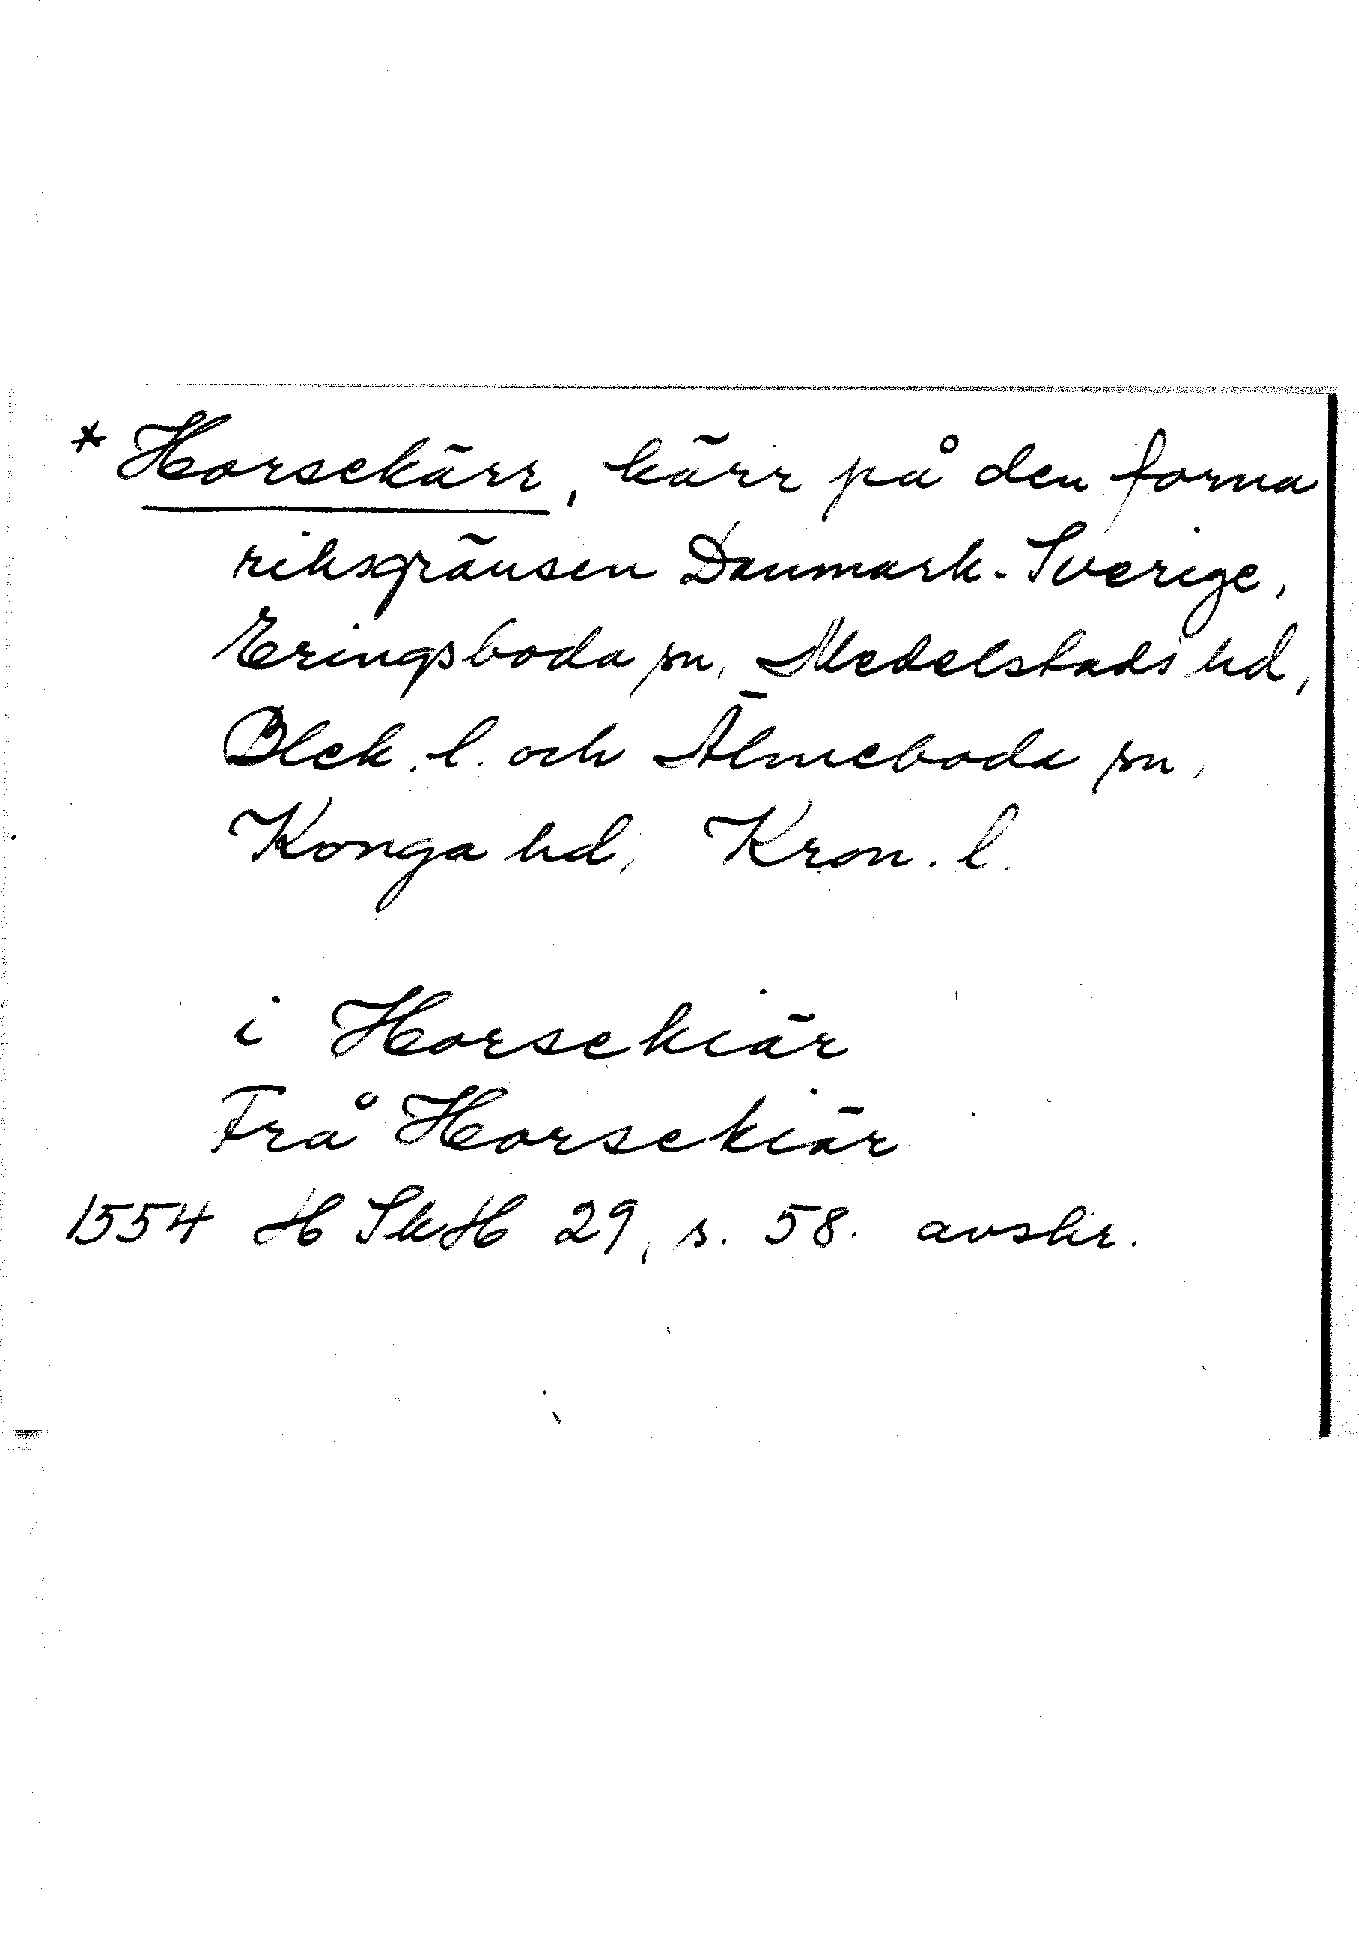 * Horsekärr, kärr på den forna
riksgränsen Danmark-Sverige,
Eringsboda sn, Medelstads hd,
Blek. l. och Älmeboda sn,
Konga hd, Kron. l.
i Horsekiär
Frå Horsekiär
1554 H SkH 29, s. 58. avskr.